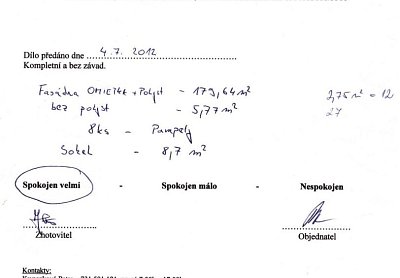 Dílo předáno dne 4.7. 2012
Kompletní a bez závad.
Fasádna OMIETKA + Polyst - 179,64 m²
2,75 m² = 12
bez polyst - 5,77 m²
27
8ks - Parapety
Sokel - 8,7 m²
Spokojen velmi - Spokojen málo - Nespokojen
Zhotovitel
Objednatel
Kontakty: